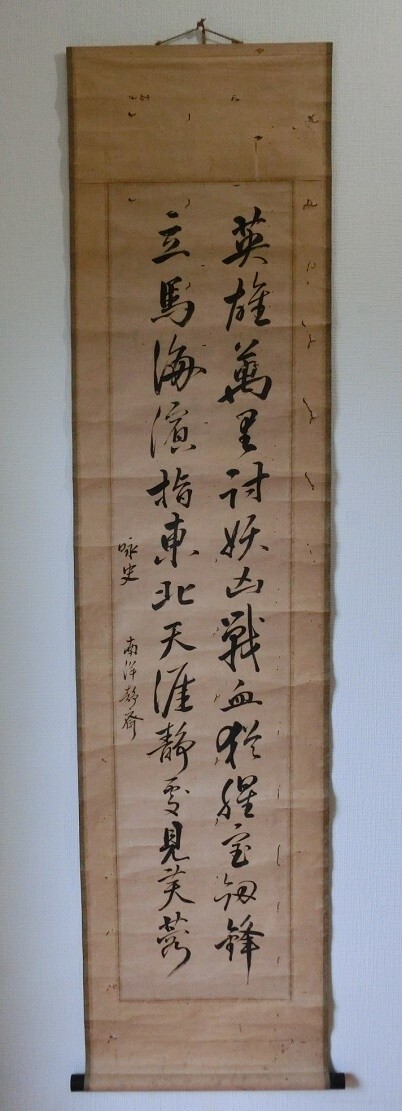 英雄萬里討妖凶戰血猶腥宝劔鋒
立馬海濱指東北天涯靜處見芙蓉
咏史
南洋静齋